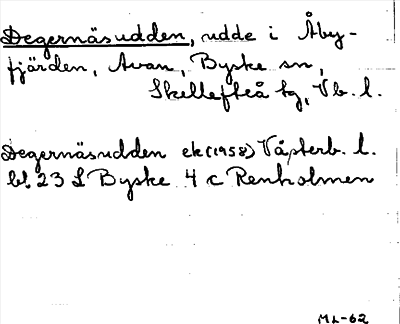 Degernäsudden, udde i Åby-
fjärden, Avan, Byske sn,
Skellefteå tg, Vb. l.
Degernäsudden ek (1958) Västerb. l.
bl. 23 L Byske 4 c Renholmen
ML-62